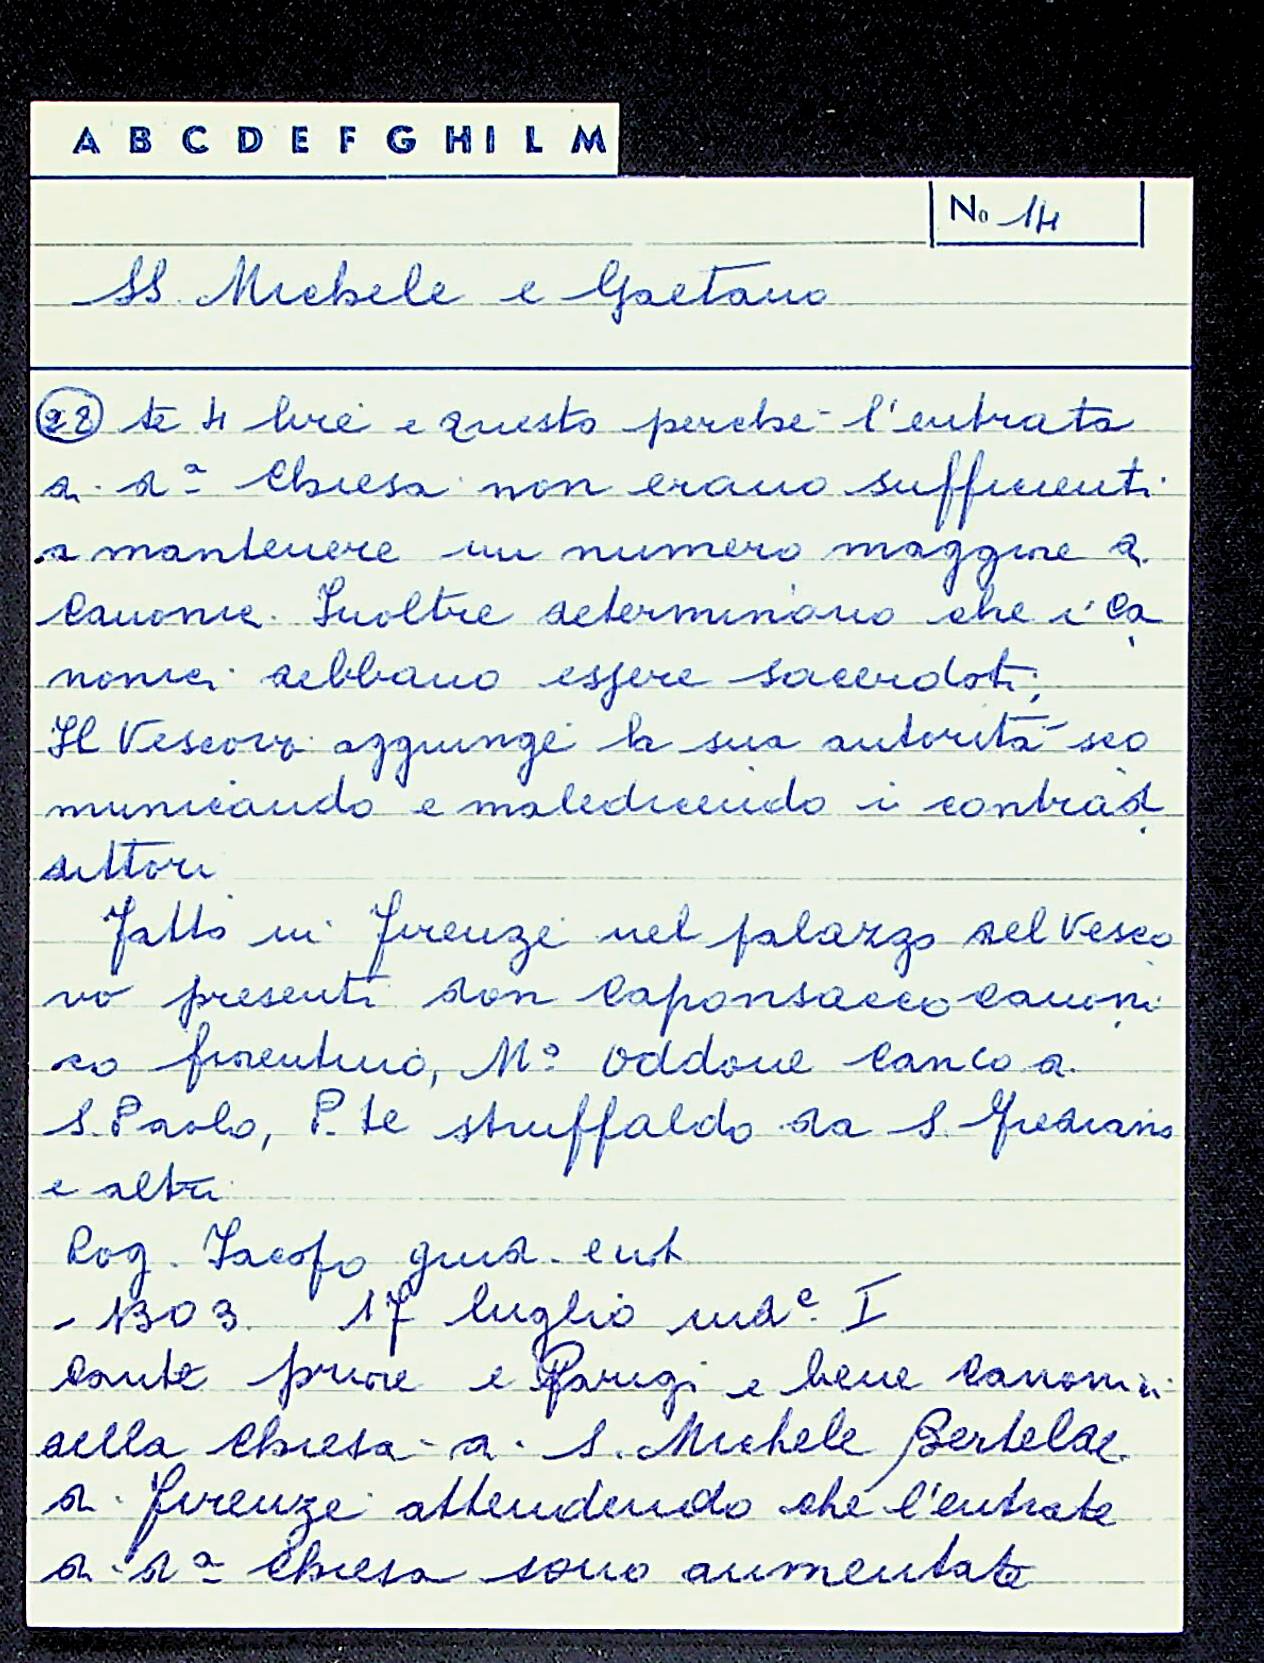 A B C D E F G H I L M
No 14
SS. Michele e Gaetano
22 te 4 lire e questo perchè l'entrata
di dª Chiesa non erano sufficienti
a mantenere un numero maggiore di
Canonici. Inoltre determinano che i Ca
nonici debbano essere sacerdoti,
Il Vescovo aggiunge la sua autorità sco
municando e maledicendo i contrad
dittori
Fatto in Firenze nel palazzo del Vesco
vo presenti don Caponsacco canoni
co fiorentino, Mº Oddone Canco di
S. Paolo, P. te Struffaldo da S. Frediano
e altri
Rog. Iacopo giud.
- 1303 17 luglio indᵉ. I
Conte priore e Parigi e bene Canonici
della Chiesa di S. Michele Bertelde
di Firenze attendendo che l'entrate
di dª Chiesa sono aumentate